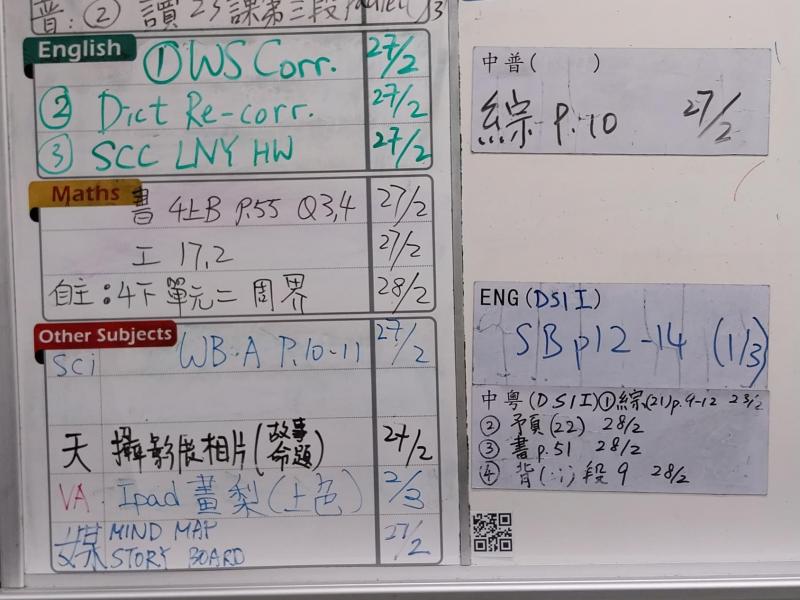 普：② 讀23課第三段
English
①WS Corr. 27/2
② Dict Re-corr. 27/2
③ SCC LNY HW 27/2
Maths
書 4上B P.55 Q3,4 27/2
工 17,2 27/2
自主：4下單元二 周界 28/2
Other Subjects
Sci WB.A P.10-11 27/2
天 攝影展相片(故事命題) 27/2
VA Ipad 畫梨(上色) 2/3
媒 MIND MAP
STORY BOARD 27/2
中普( )
綜 P.10 27/2
ENG(DSII)
SB p12-14 (1/3)
中粵(DSII)①綜(21)p.9-12
② 預(22) 28/2
③ 書p.51 28/2
④ 背(二)段9 28/2